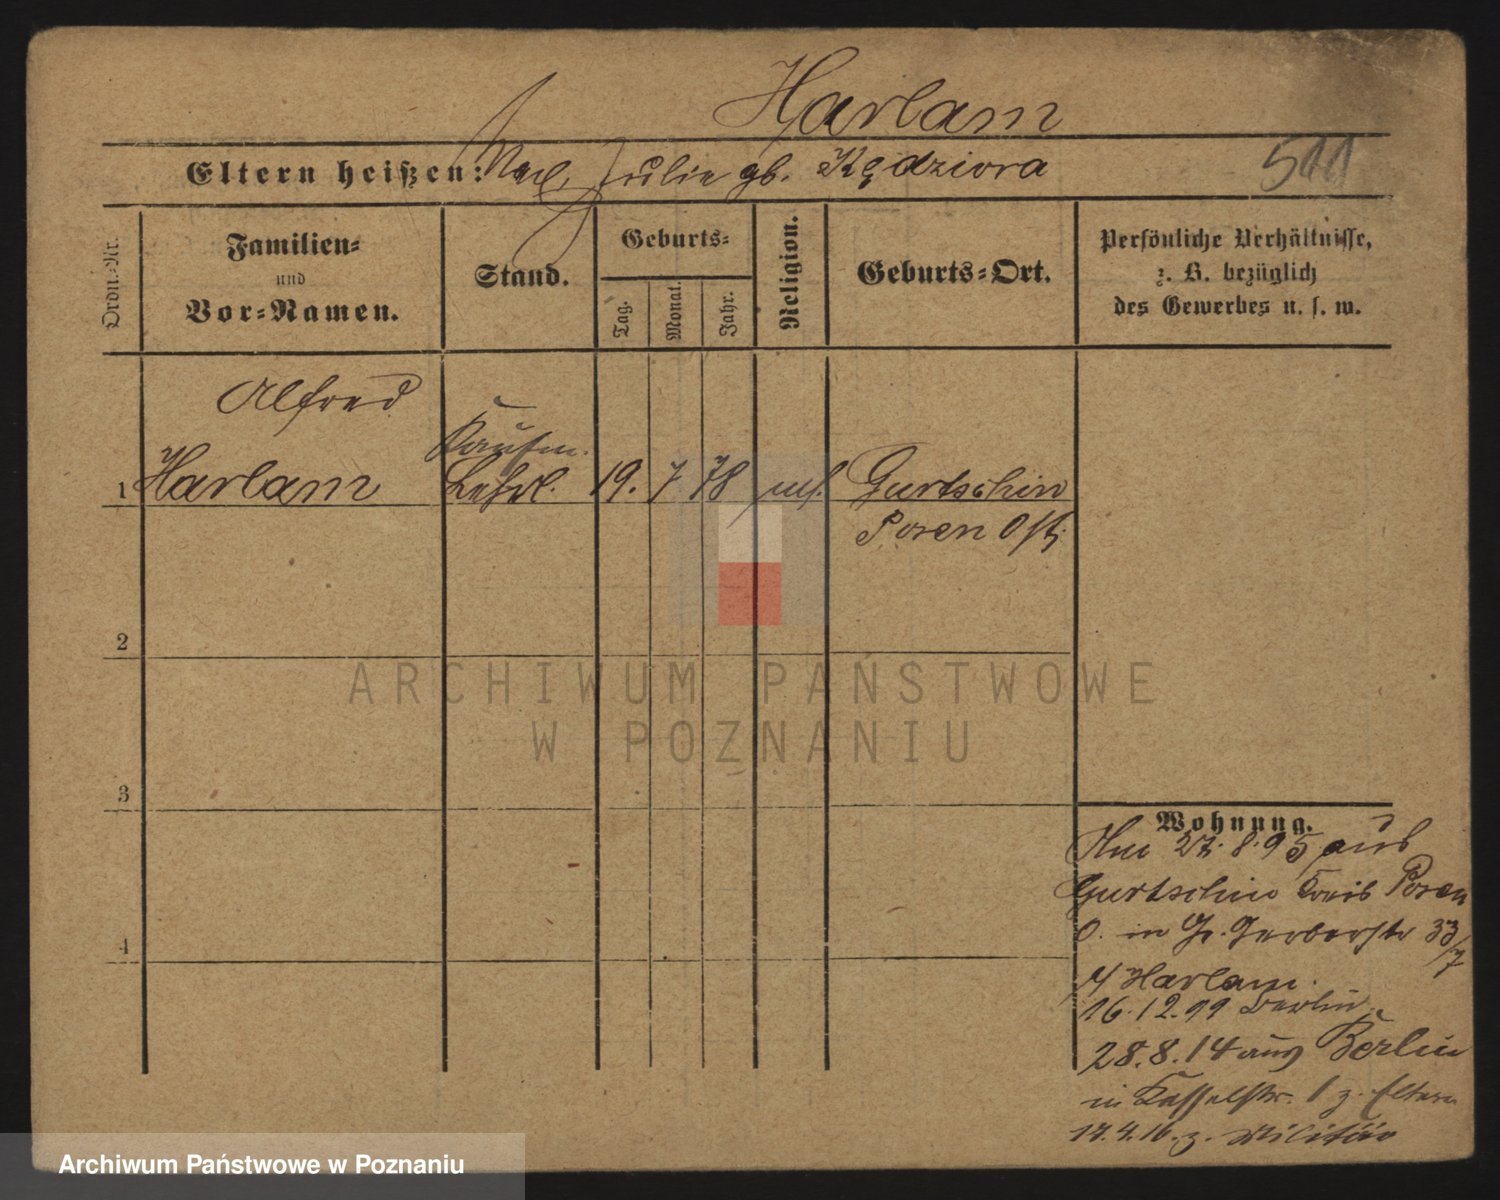 Harlam
Eltern heißen: Julie gb. Kędziora
511
Ordn.-Nr.
Familien-
und
Vor-Namen.
Stand.
Geburts-
Tag.
Monat.
Jahr.
Religion.
Geburts-Ort.
Persönliche Verhältnisse,
z. B. bezüglich
des Gewerbes u. s. w.
Alfred
Kaufm.
1 Harlam Lehrl. 19. 7 78 Gurtschin
Posen Ost
2
3
4
Wohnung.
8. 95 aus
Gurtschin Kreis Posen
O. in Gr. Gerberstr 33/7
Harlam.
16.12.99 Berlin.
28.8.14 aus Berlin
in Kasselstr. 1 z. Eltern
17.4.16. z. Militär
ARCHIWUM PAŃSTWOWE
W POZNANIU
Archiwum Państwowe w Poznaniu